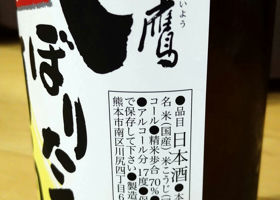 鷹
よう
ぼりた
●品目 日本酒 ●
名 米(国産)、米こうじ(
コール●精米歩合70%●
●アルコール分 17度●
で保存して下さい●製造
熊本市南区川尻四丁目6